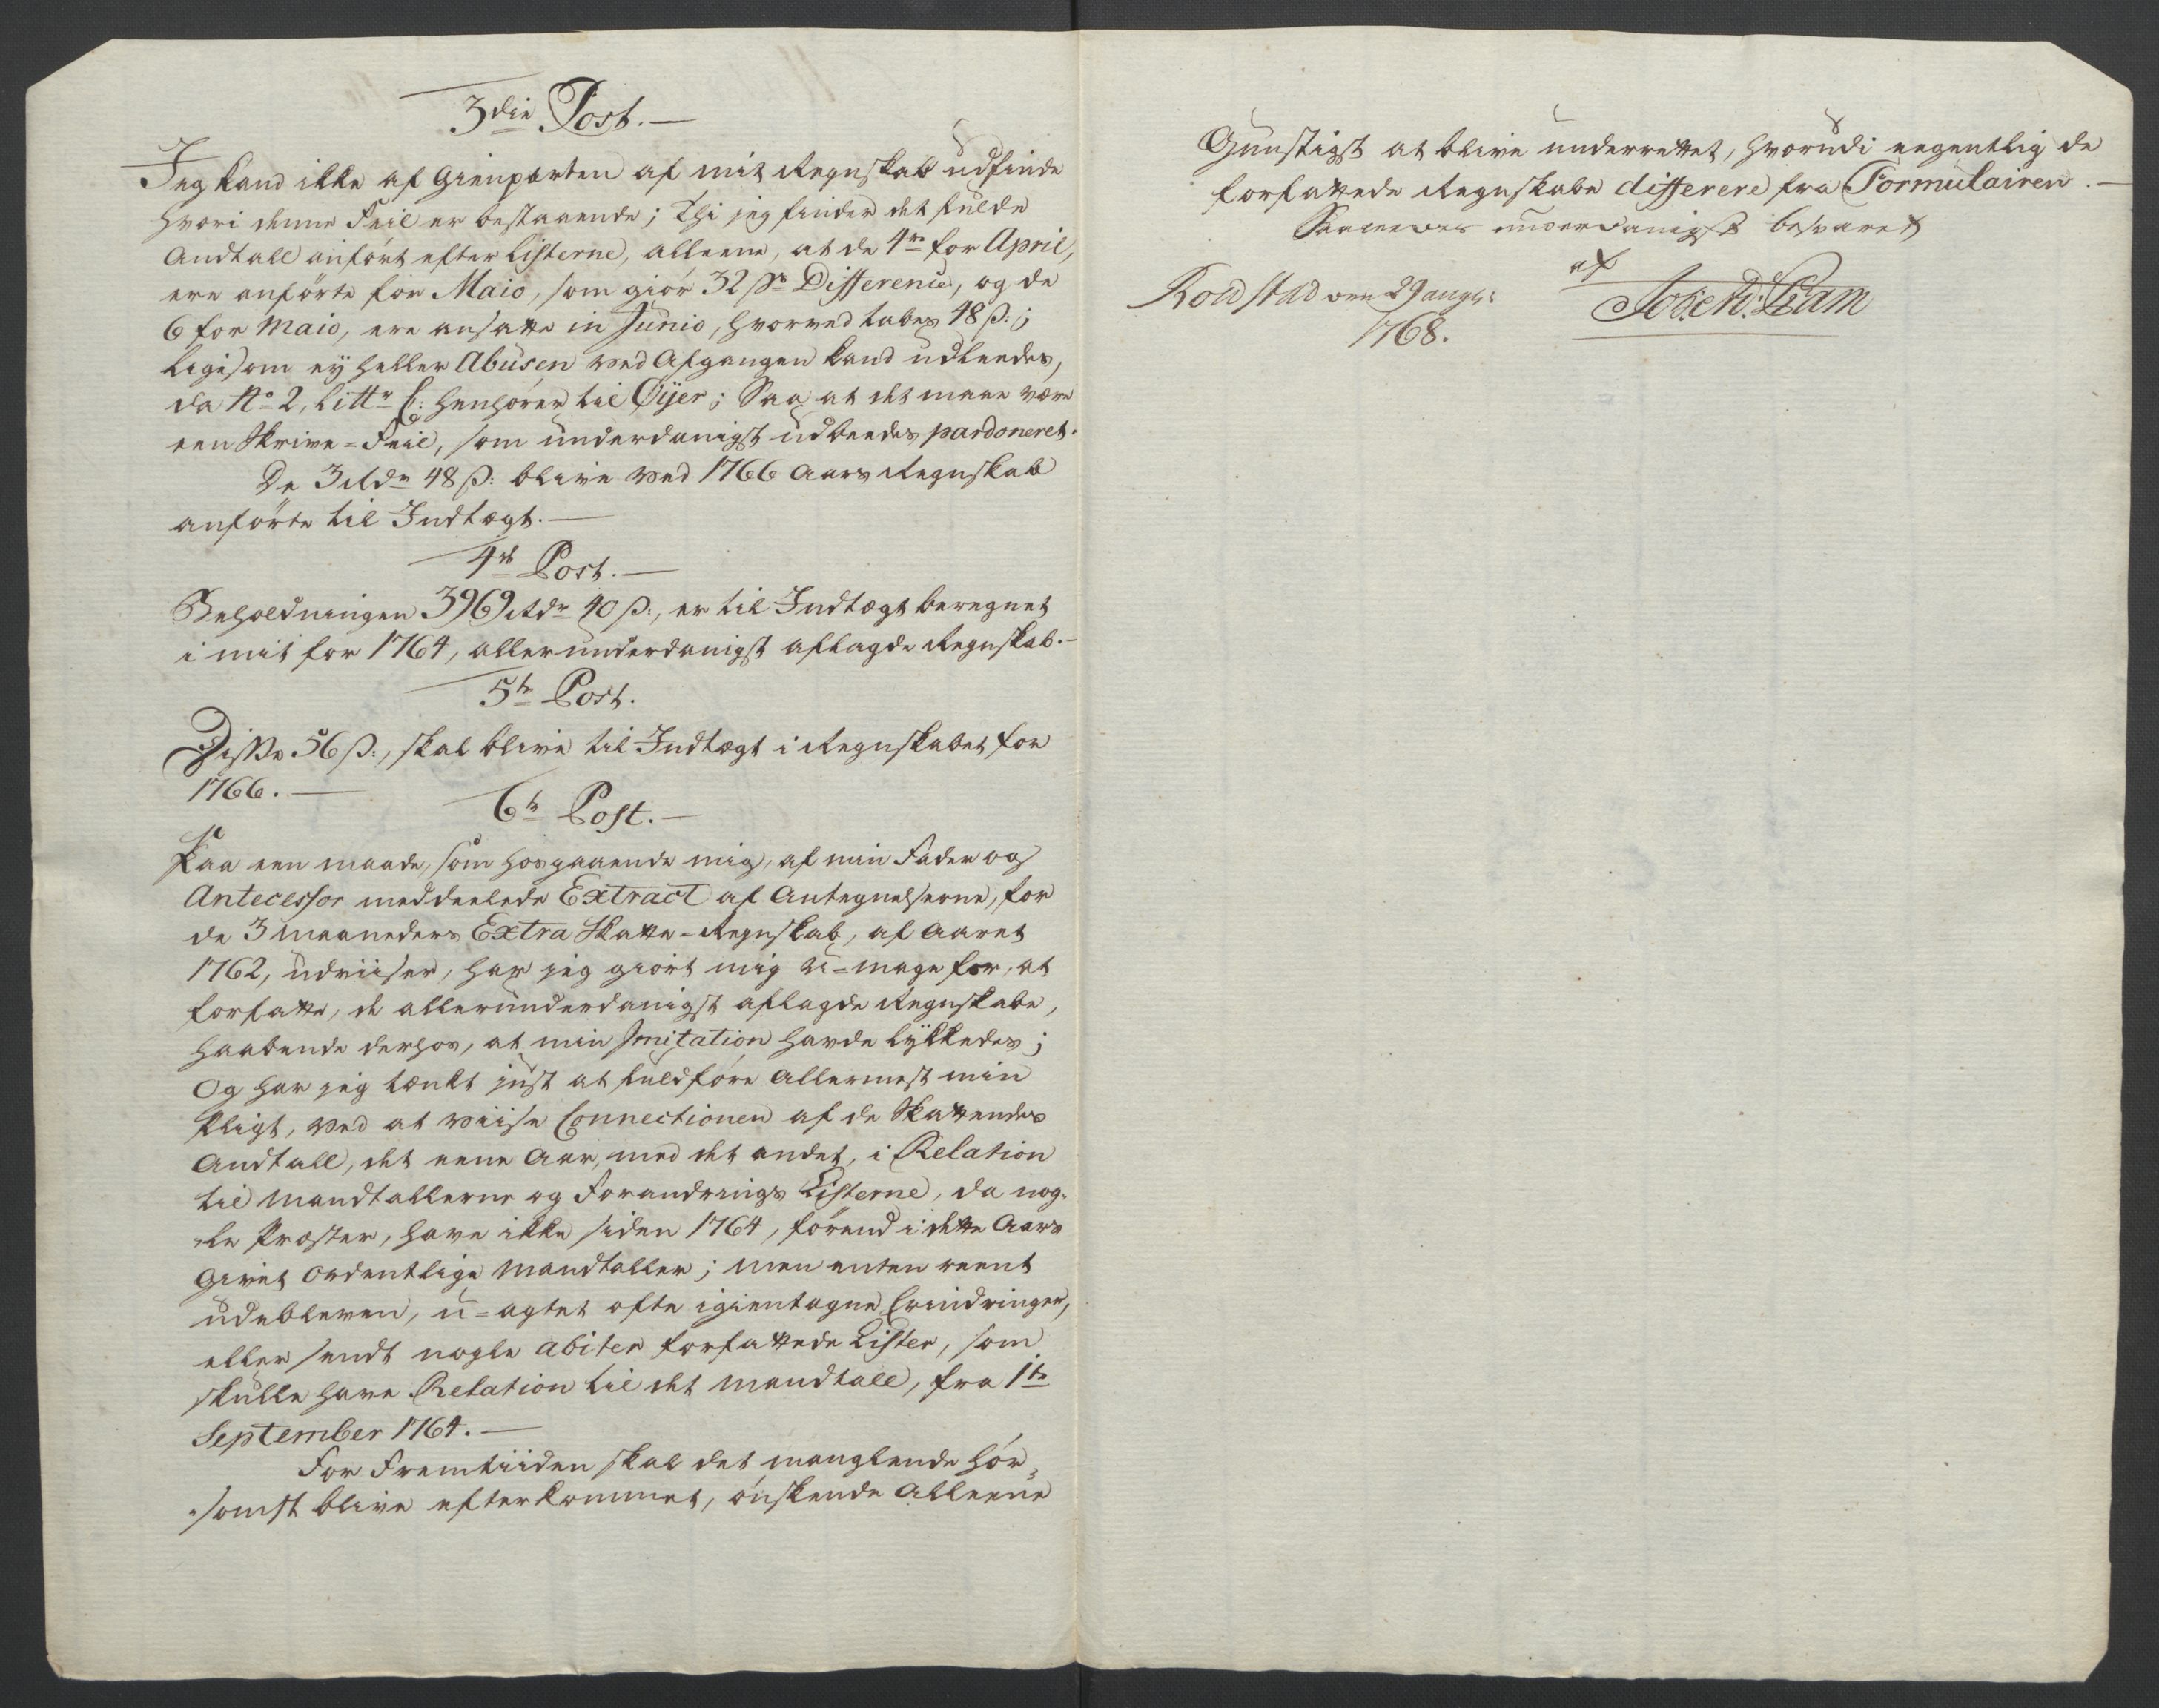 3die Post.—
Jeg kand ikke af Gienparten af mit Regnskab udfinde
hvori denne Feil er bestaaende; Thi jeg finder det fulde
Andtall anført efter Listerne, alleene, at de 4re for April,
ere anførte for Maio, som giør 32 ß Difference, og de
6 for Maio, ere ansatte in Junio, hvorved tabes 48 ß:;
ligesom ej heller Abusen ved Afgangen kand udleedes,
da No 2, Littr C: henhører til Øijer; Saa at det maae være
een Skrive=Feil, som underdanigst udbeedes pardoneret.
De 3 Rdr 48 ß: blive ved 1766 Aars Regnskab
anførte til Indtægt.—
4de Post.—
Beholdningen 3969 Rdr 40 ß:, er til Indtægt beregnet
i mit for 1764, allerunderdanigst aflagde Regnskab.—
5te Post.
Disse 56 ß:, skal blive til Indtægt i Regnskabet for
1766.—
6te Post.—
Paa een maade, som hosgaaende mig, af min Fader og
Antecessor meddeelede Extract af Antegnelserne, for
de 3 Maaneders Extra Skatte=Regnskab, af Aaret
1762, udviiser, har jeg giört mig U=mage for, at
forfatte, de allerunderdanigst aflagde Regnskabe,
haabende derhos, at min Imitation havde lykkedes;
Og har jeg tænkt just at fuldføre Allermest min
Pligt, ved at viise Connectionen af de Skattendes
Andtall, det eene Aar, med det andet, i Relation
til Mandtallerne og Forandrings Listerne, da nog-
le Præster, have ikke siden 1764, førend i dette Aars
Givet Ordentlige Mandtaller; men enten reent
udebleven, u=agtet ofte igientagne Erindringer,
eller sendt nogle abiter forfattede Lister, som
skulle have Relation til det Mandtall, fra 1te
September 1764.—
For Fremtiiden skal det manglende hør-
somst blive efterkommet, ønskende Alleene
Gunstigst at blive underrettet, hvorudi eegentlig de
forfattede Regnskabe differere fra Formulairen.—
Saaledes underdanigst besvaret
af
Roa stad den 29 aug:
1768.